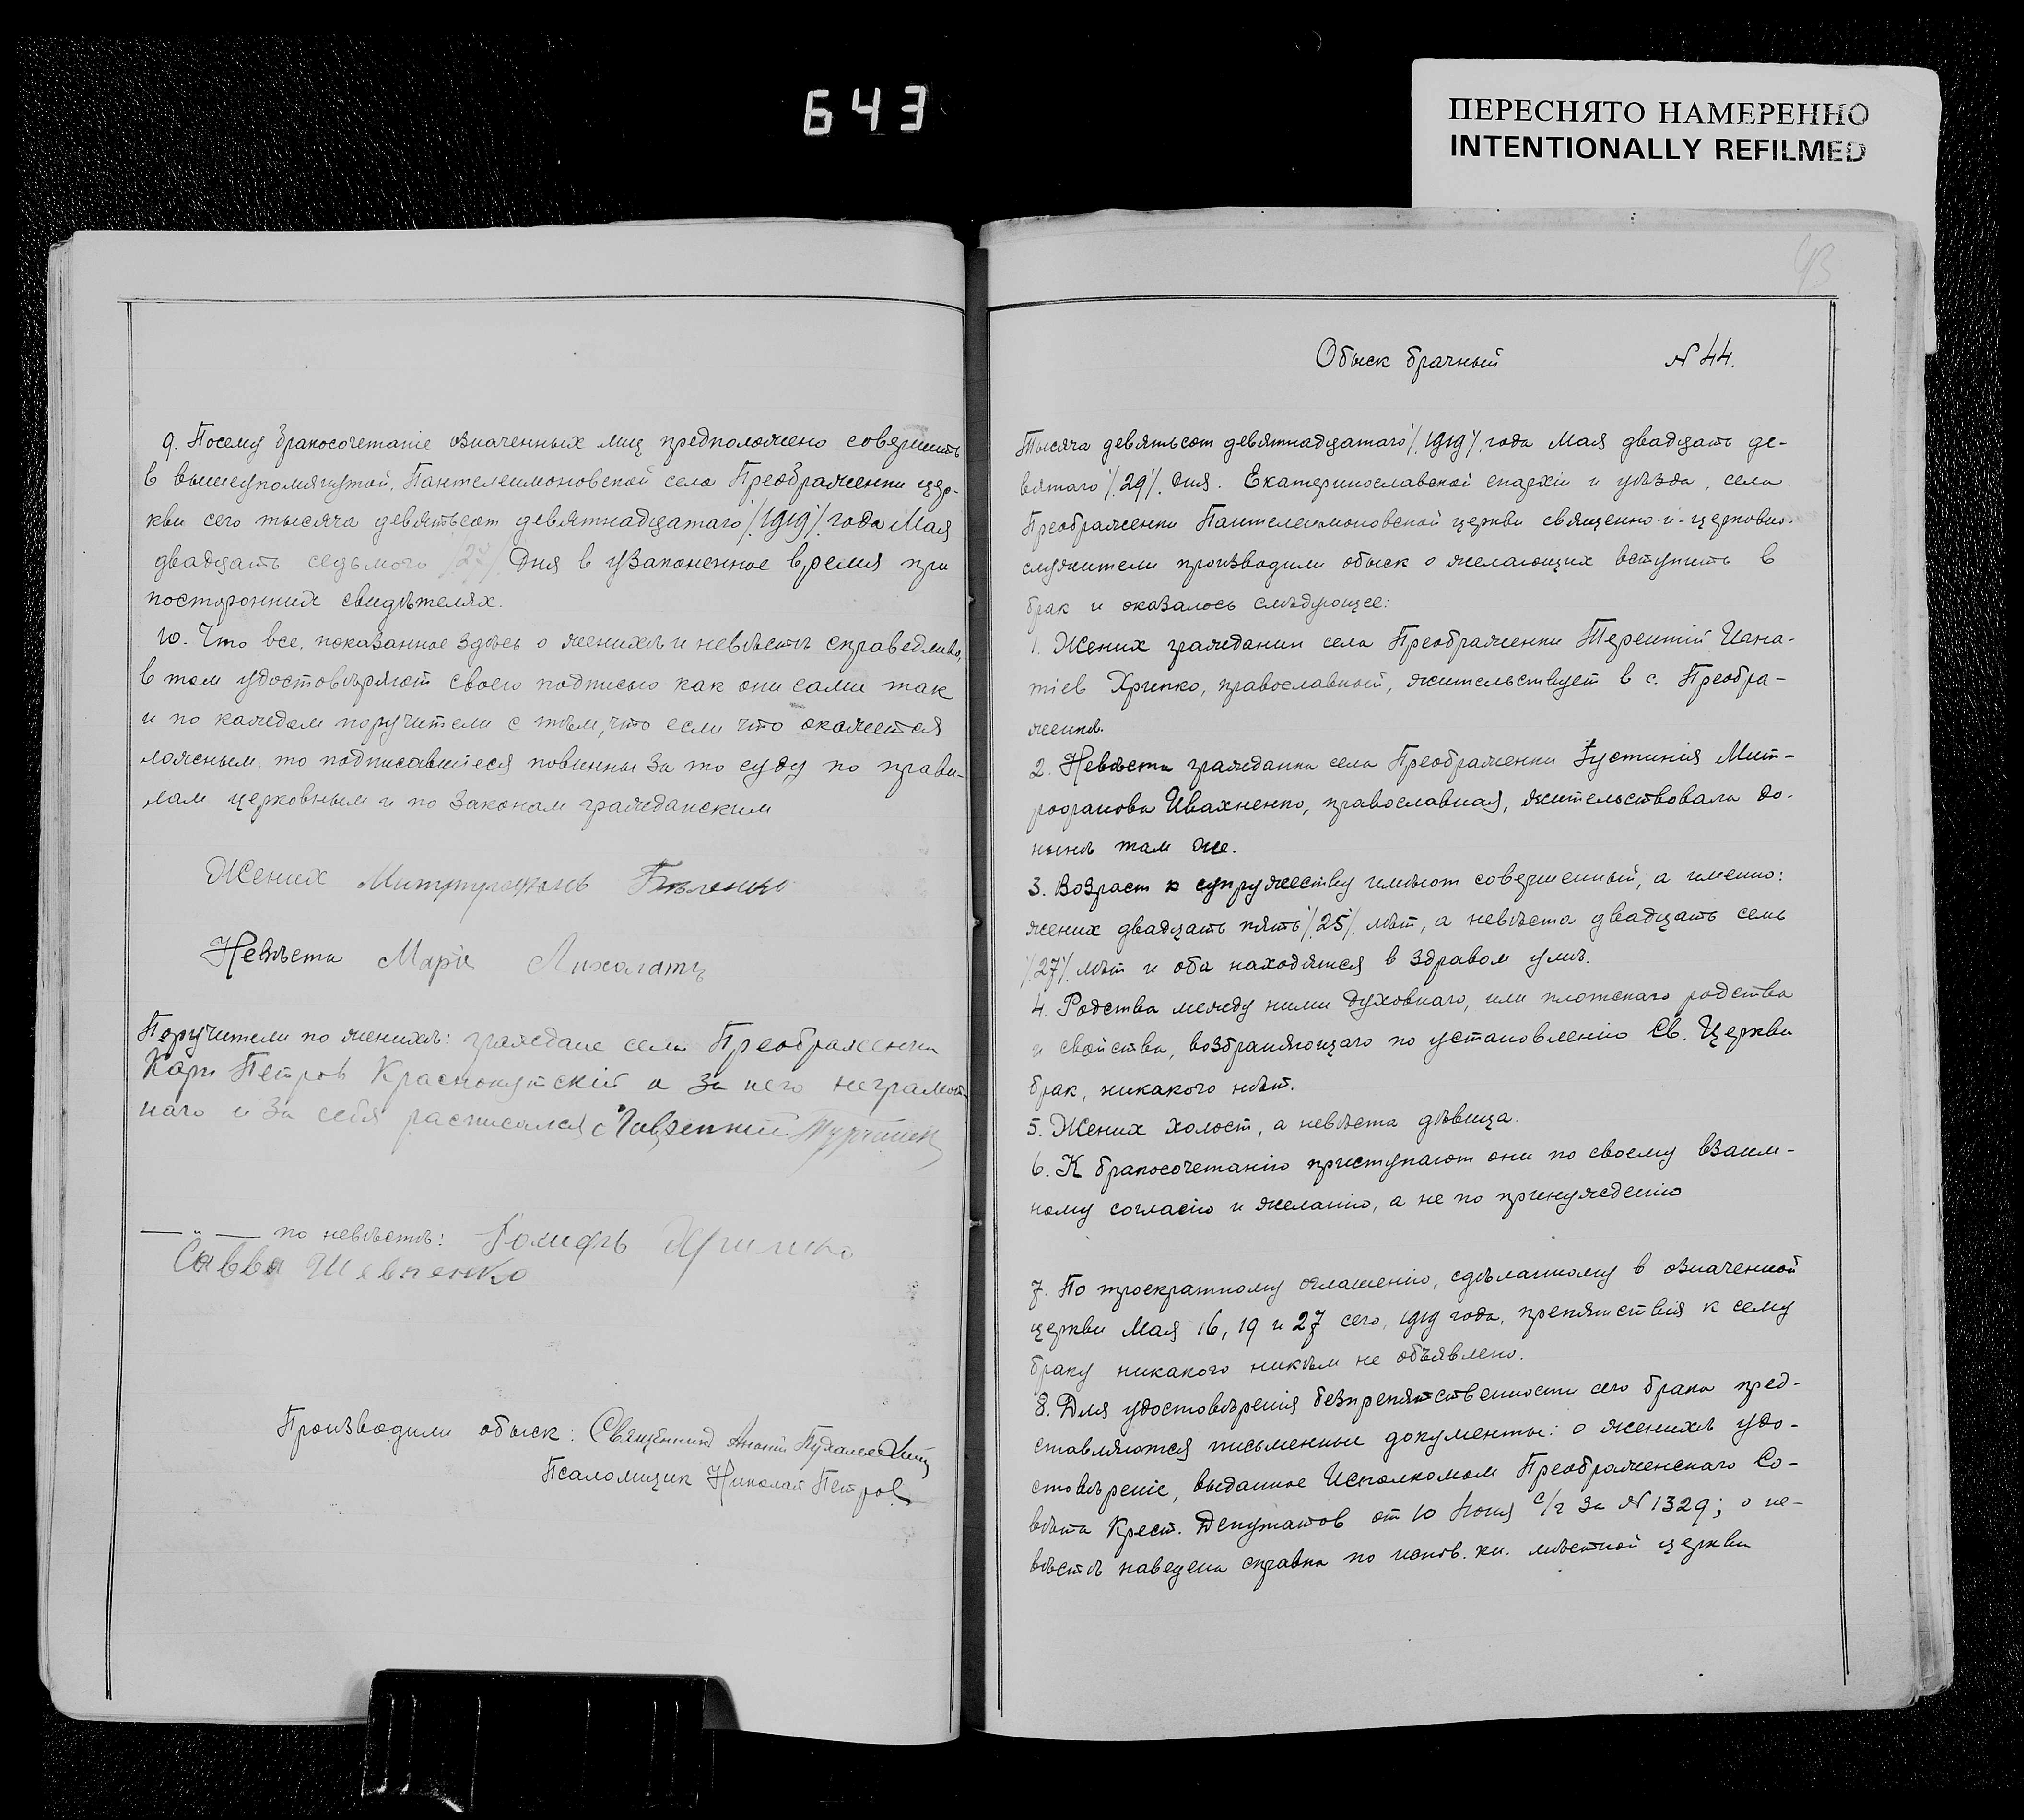 643
ПЕРЕСНЯТО НАМЕРЕННО
INTENTIONALLY REFILMED
9. Посему бракосочетаніе означенных лиц предположено совершить
в вышеупомянутой, Пантелеимоновской села Преображенки цер-
кви сего тысяча девятьсот девятнадцатаго /.1919/. года Мая
двадцать седьмого /27/ дня в узаконенное время при
посторонних свидѣтелях.
10. Что все, показанное здѣсь о женихѣ и невѣстѣ справедливо,
в том удостовѣряют своею подписью как они сами так
и по каждом поручители с тѣм, что если что окажется
ложным, то подписавшіеся повинны за то суду по прави-
лам церковным и по законам гражданским
Жених Митрофанъ Бѣленко
Невѣста Марія Лихолатъ
Поручители по женихѣ: граждане села Преображенки
Карп Петров Краснокутскій а за него неграмот-
наго и за себя расписался
— „ — по невѣстѣ: Хрипко
Савва Шевченко
Производили обыск: Священник
Псаломщик Николай Петров
43
Обыск брачный N 44.
Тысяча девятьсот девятнадцатаго /.1919/. года Мая двадцать де-
вятаго /.29/. дня. Екатеринославской епархіи и уѣзда, села
Преображенки Пантелеимоновской церкви священно-и-церковно-
служители производили обыск о желающих вступить в
брак и оказалось слѣдующее:
1. Жених гражданин села Преображенки Терентій Игна-
тіев Хрипко, православный, жительствует в с. Преобра-
женкѣ.
2. Невѣста гражданка села Преображенки Іустинія Мит-
рофанова Ивахненко, православная, жительствовала до-
нынѣ там же.
3. Возраст к супружеству имѣют совершенный, а именно:
жених двадцать пять /.25/. лѣт, а невѣста двадцать семь
/.27/. лѣт и оба находятся в здравом умѣ.
4. Родства между ними духовнаго, или плотскаго родства
и свойства, возбраняющаго по установленію Св. Церкви
брак, никакого нѣт.
5. Жених холост, а невѣста дѣвица.
6. К бракосочетанію приступают они по своему взаим-
ному согласію и желанію, а не по принужденію
7. По троекратному оглашенію, сдѣланному в означенной
церкви Мая 16, 19 и 27 сего, 1919 года, препятствія к сему
браку никакого никѣм не объявлено.
8. Для удостовѣренія безпрепятственности сего брака пред-
ставляются письменные документы: о женихѣ удо-
стовѣреніе, выданное Исполкомом Преображенскаго Со-
вѣта Крест. Депутатов от 10 Іюня с/г за N 1329; о не-
вѣстѣ наведена справка по испов. кн. мѣстной церкви